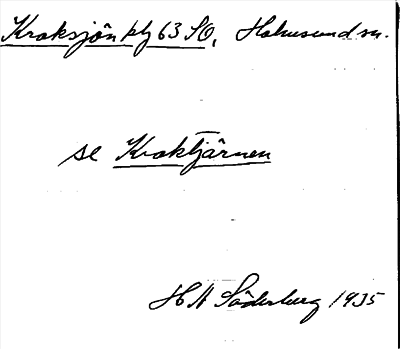 Kroksjön blg 63 SO, Holmsund sn.
se Kroktjärnen
H A Söderberg 1935